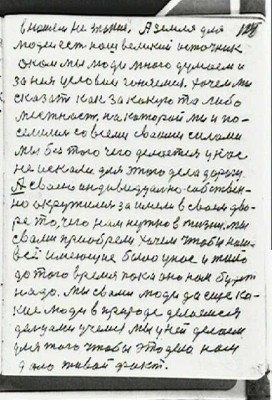 в нашем не знание. А земля для 124
людей ест наш великий источник
о ком мы люди много думаем и
за ния целовик гоняемся. хочем мы
сказат как за какую то либо
местност, на которий мы и по-
селились со всеми своими силами
мы без того чего делается у нас
не искали для этого дела дорогу.
А своею индивидуально собствен-
но окружился заимели в своем дво-
ре то, чего нам нужно в жизни. мы
сами приобрели хочем чтобы наш
всей имеющие было у нас и жило
до того время пока оно нам будет
надо. Мы с вами люди да еще ка-
кие люди в природе делаемся
делцами учемся мы у ней делами
для того чтобы это дело нам
дало живой факт.